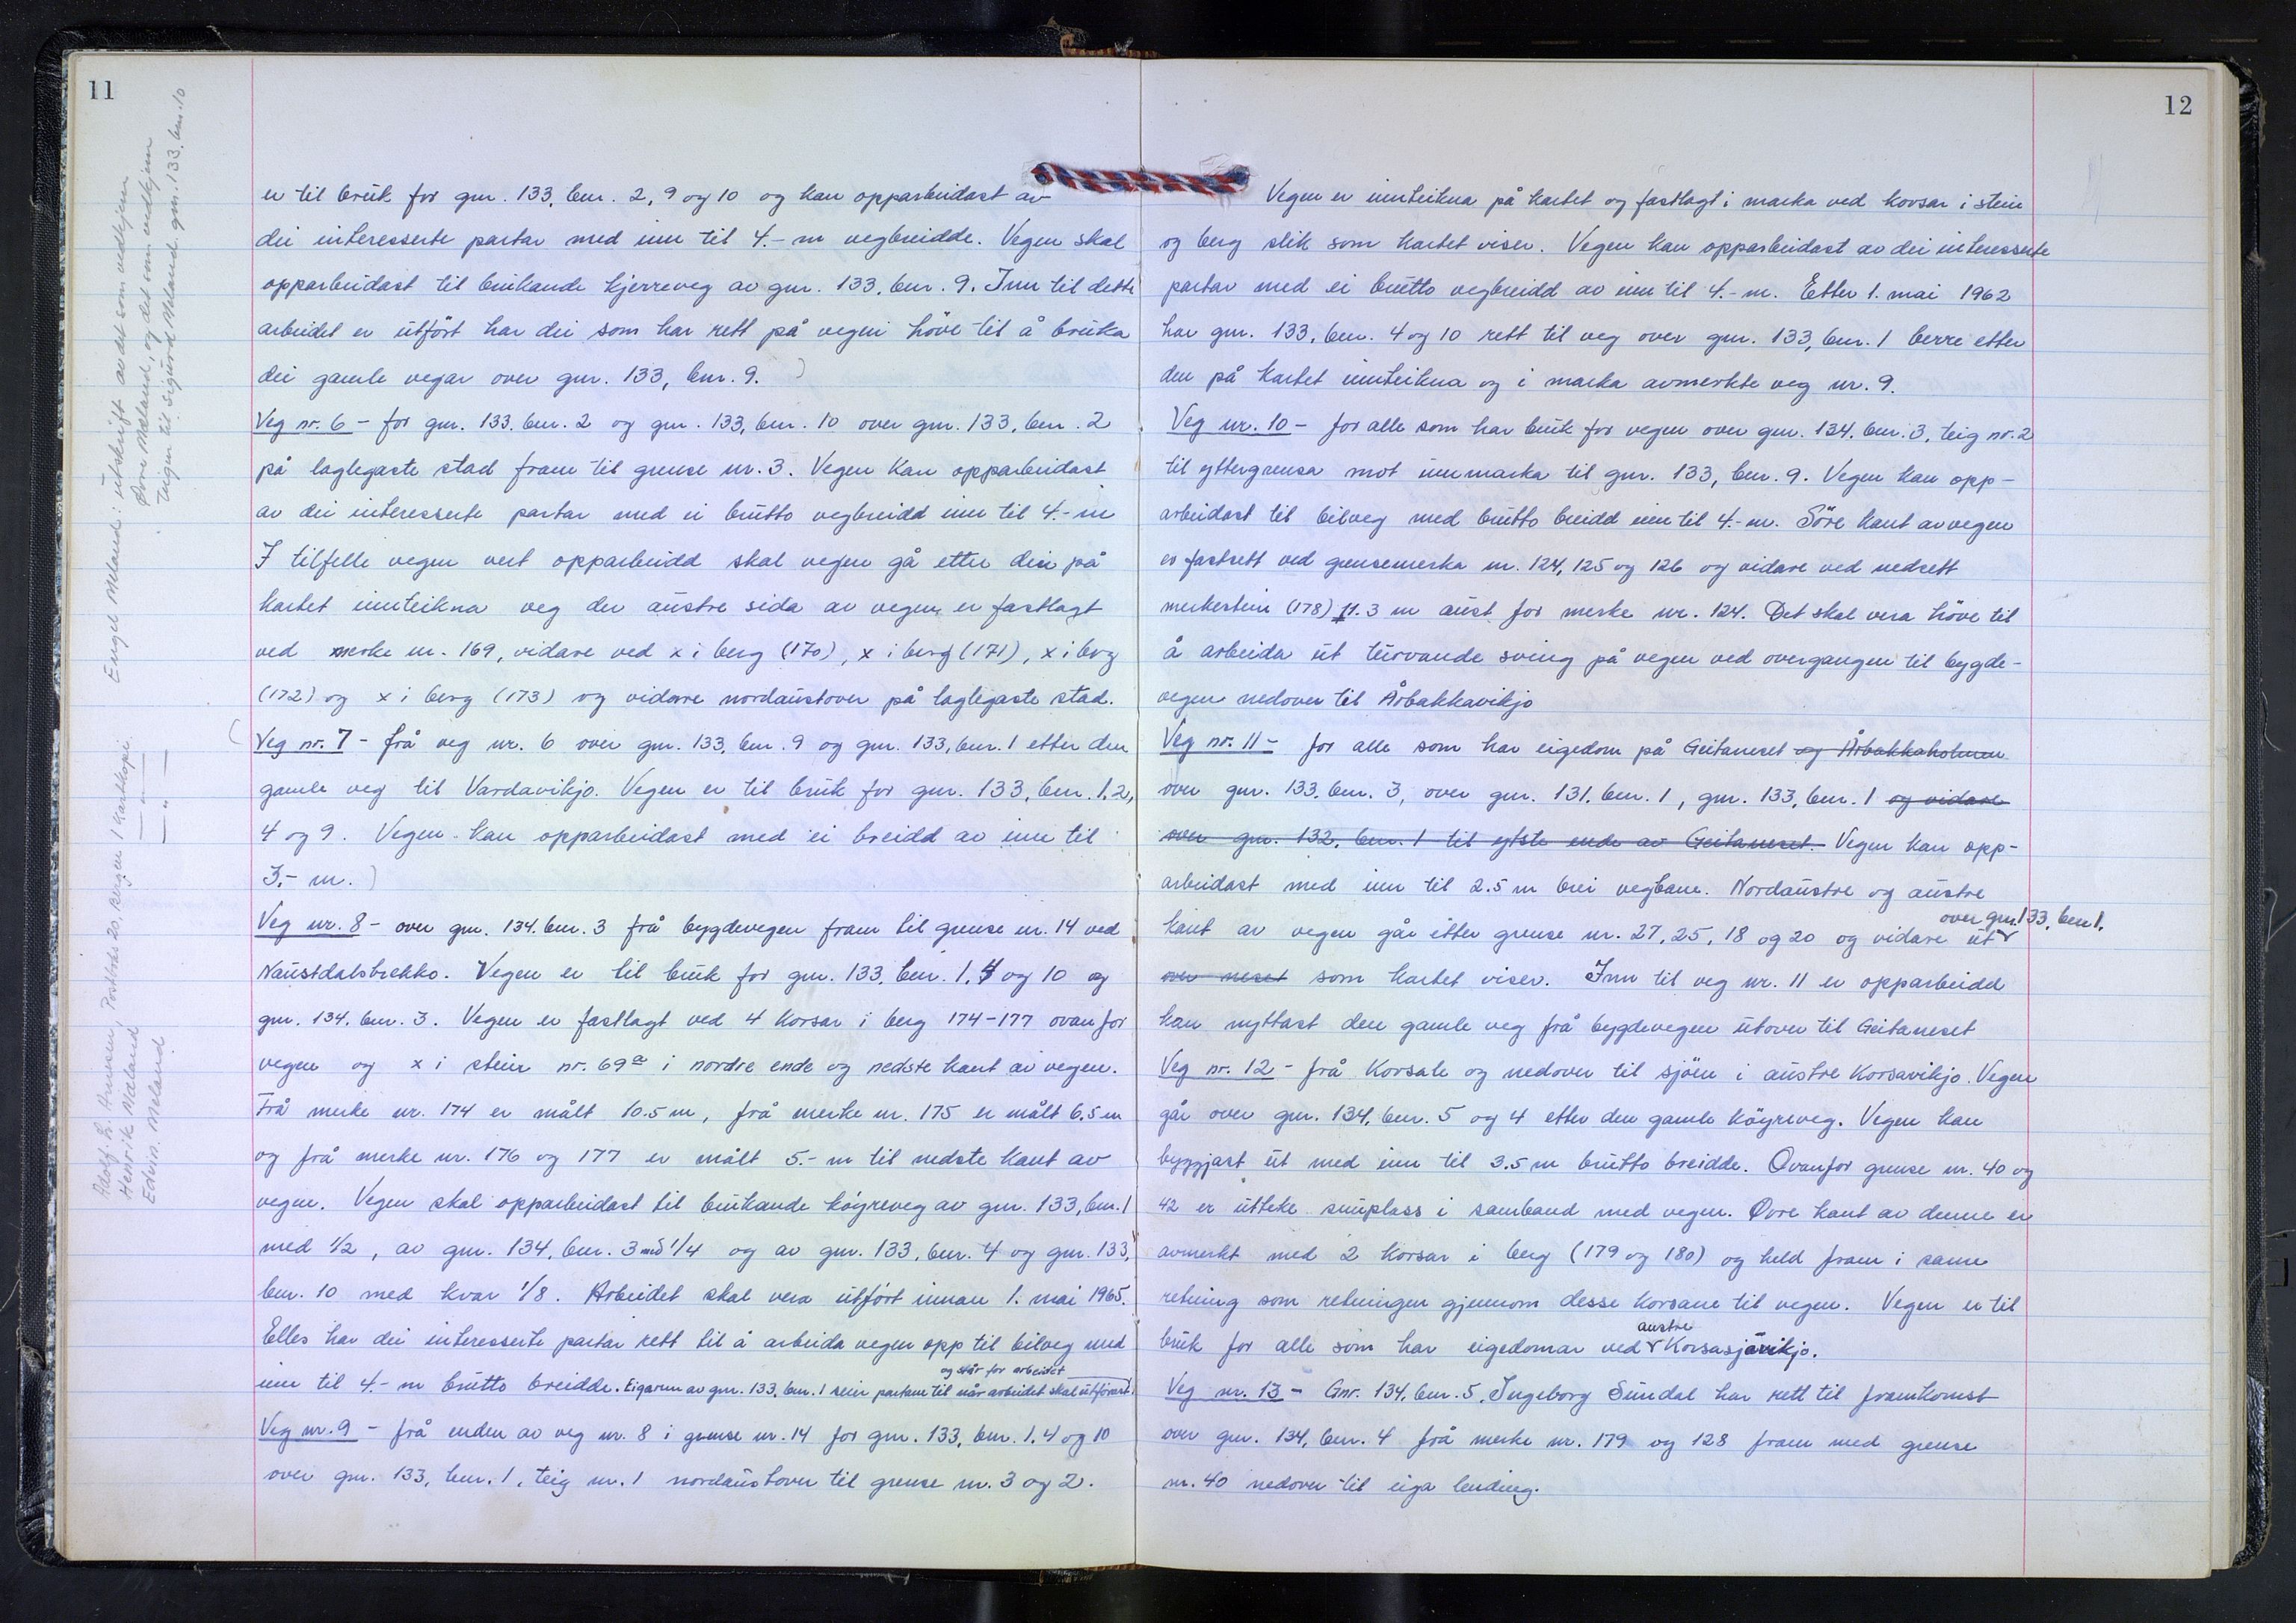 11
er til bruk for gnr. 133, bnr. 2, 9 og 10 og kan opparbeidast av
dei interesserte partar med inn til 4.- m vegbreidde. Vegen skal
opparbeidast til brukande kjerreveg av gnr. 133, bnr. 9. Inn til dette
arbeidet er utført har dei som har rett på vegen høve til å bruka
dei gamle vegar over gnr. 133, bnr. 9. )
Veg nr. 6 - for gnr. 133. bnr. 2 og gnr. 133, bnr. 10 over gnr. 133, bnr. 2
på laglegaste stad fram til grense nr. 3. Vegen kan opparbeidast
av dei interesserte partar med ei brutto vegbreidd inn til 4.- m
I tilfelle vegen vert opparbeidd skal vegen gå etter den på
kartet innteikna veg der austre sida av vegen er fastlagt
ved merke nr. 169, vidare ved x i berg (170), x i berg (171), x i berg
(172) og x i berg (173) og vidare nordaustover på laglegaste stad.
( Veg nr. 7 - frå veg nr. 6 over gnr. 133, bnr. 9 og gnr. 133, bnr. 1 etter den
gamle veg til Vardavikjo. Vegen er til bruk for gnr. 133, bnr. 1, 2,
4 og 9. Vegen kan opparbeidast med ei breidd av inn til
3,- m. )
Veg nr. 8 - over gnr. 134. bnr. 3 frå bygdevegen fram til grense nr. 14 ved
Naustdalsbrekko. Vegen er til bruk for gnr. 133, bnr. 1, 4 og 10 og
gnr. 134. bnr. 3. Vegen er fastlagt ved 4 korsar i berg 174-177 ovanfor
vegen og x i stein nr. 69a i nordre ende og nedste kant av vegen.
Frå merke nr. 174 er målt 10.5 m, frå merke nr. 175 er målt 6.5 m
og frå merke nr. 176 og 177 er målt 5.- m til nedste kant av
vegen. Vegen skal opparbeidast til brukande köyreveg av gnr. 133, bnr. 1
med 1/2, av gnr. 134, bnr. 3 med 1/4 og av gnr. 133, bnr. 4 og gnr. 133,
bnr. 10 med kvar 1/8. Arbeidet skal vera utført innan 1. mai 1965.
Elles har dei interesserte partar rett til å arbeida vegen opp til bilveg med
og står for arbeidet
inn til 4.- m brutto breidde. Eigaren av gnr. 133, bnr. 1 seier partane til når arbeidet skal utførast.
Veg nr. 9 - frå enden av veg nr. 8 i grense nr. 14 for gnr. 133, bnr. 1, 4 og 10
over gnr. 133, bnr. 1, teig nr. 1 nordaustover til grense nr. 3 og 2.
Engel Meland: utskrift av det som vedkjem
Dore Meland, og det som vedkjem
vegen til Sigurd Meland gnr. 133, bnr. 10
Adolf L. Arnesen, Postboks 20, Bergen 1 kartkopi.
Henrik Meland — " —
Edvin Meland — " —
12
Vegen er innteikna på kartet og fastlagt i marka ved korsar i stein
og berg slik som kartet viser. Vegen kan opparbeidast av dei interesserte
partar med ei brutto vegbreidd av inn til 4.- m. Etter 1. mai 1962
har gnr. 133, bnr. 4 og 10 rett til veg over gnr. 133, bnr. 1 berre etter
den på kartet innteikna og i marka avmerkte veg nr. 9.
Veg nr. 10 - for alle som har bruk for vegen over gnr. 134, bnr. 3, teig nr. 2
til yttergrensa mot innmarka til gnr. 133, bnr. 9. Vegen kan opp-
arbeidast til bilveg med brutto breidd inn til 4.- m. Söre kant av vegen
er fastsett ved grensemerka nr. 124, 125 og 126 og vidare ved nedsett
merkestein (178) 11.3 m aust for merke nr. 124. Det skal vera höve til
å arbeida ut turvande sving på vegen ved overgangen til bygde-
vegen nedover til Årbakkavikjo
Veg nr. 11 - for alle som har eigedom på Geitaneset og Årbakkaholmen
over gnr. 133. bnr. 3, over gnr. 131. bnr. 1, gnr. 133, bnr. 1 og vidare
over gnr. 132, bnr. 1 til ytste ende av Geitaneset. Vegen kan opp-
arbeidast med inn til 2.5 m brei vegbane. Nordaustre og austre
over gnr. 133, bnr. 1.
kant av vegen går etter grense nr. 27, 25, 18 og 20 og vidare ut
over neset som kartet viser. Inn til veg nr. 11 er opparbeidd
kan nyttast den gamle veg frå bygdevegen utover til Geitaneset
Veg nr. 12 - frå Korsale og nedover til sjöen i austre Korsavikjo. Vegen
går over gnr. 134, bnr. 5 og 4 etter den gamle köyreveg. Vegen kan
byggjast ut med inn til 3.5 m brutto breidde. Ovanfor grense nr. 40 og
42 er utteke snuplass i samband med vegen. Øvre kant av denne er
avmerkt med 2 korsar i berg (179 og 180) og held fram i same
retning som retningen gjennom desse korsane til vegen. Vegen er til
austre
bruk for alle som har eigedomar ved Korsasjövikjo.
Veg nr. 13 - Gnr. 134, bnr. 5, Ingeborg Sundal har rett til framkomst
over gnr. 134, bnr. 4 frå merke nr. 179 og 128 fram med grense
nr. 40 nedover til eiga lending.